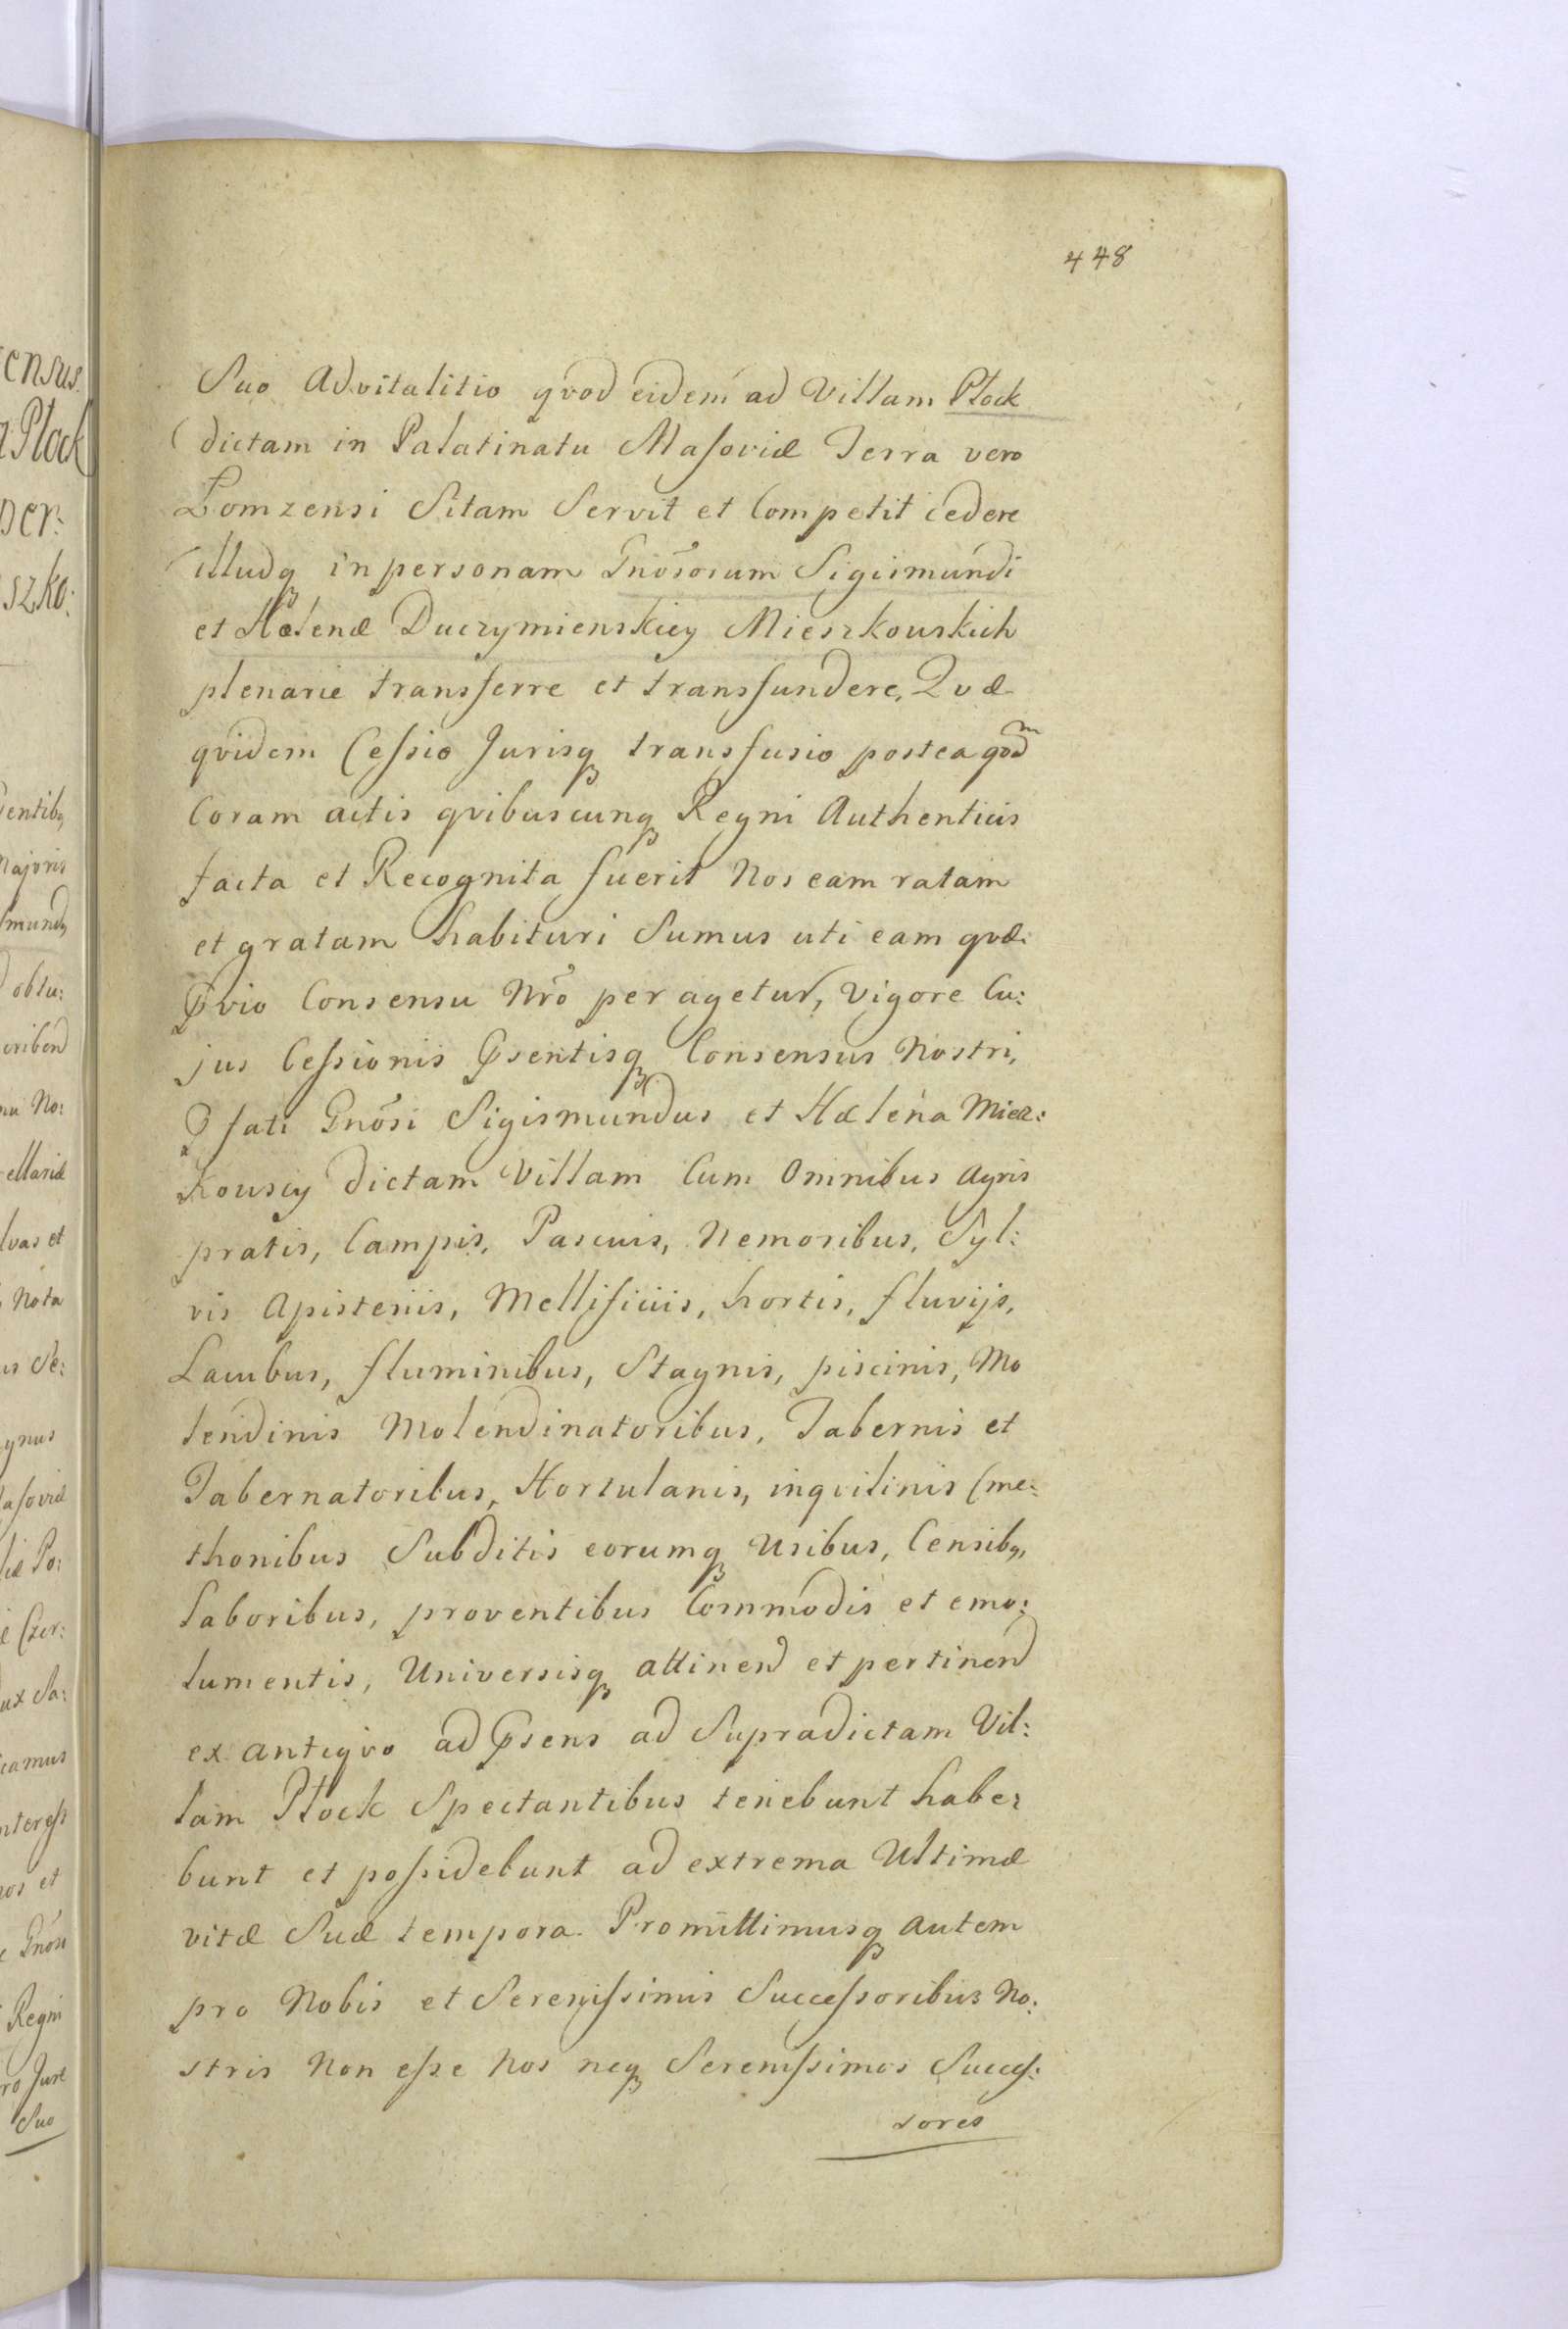 448
Suo Advitalitio qvod eidem ad Villam Płock
dictam in Palatinatu Masoviæ Terra vero
Łomzensi Sitam Servit et Competit cedere
illudq in personam Gnosorum Sigismundi
et Hælenæ Duczymienskiey Mieszkouskich
plenarie transferre et transfundere, Qvæ
qvidem Cessio Jurisq transfusio posteaqvodm
Coram actis qvibuscunq Regni Authenticis
facta et Recognita fuerit Nos eam ratam
et gratam habituri Sumus uti eam qvæ
Pvio Consensu Nro peragetur, Vigore Cu:
jus Cessionis Psentisq Consensus Nostri,
Pfati Gnosi Sigismundus et Hælena Miesz:
Kouscy dictam Villam Cum Omnibus Agris
pratis, Campis, Pascuis, Nemoribus, Syl:
vis Apisteriis, Mellificiis, hortis, fluvijs,
Lacubus, fluminibus, Stagnis, piscinis, Mo
lendinis Molendinatoribus, Tabernis et
Tabernatoribus, Hortulanis, inqvilinis Cme:
thonibus Subditis eorumq Usibus, Censibq,
Laboribus, proventibus Commodis et emo:
lumentis, Universisq attinend et pertinend
ex antiqvo ad Psens ad Supradictam Vil:
lam Płock Spectantibus tenebunt habe:
bunt et possidebunt ad extrema Ultimæ
vitæ Suæ tempora. Promittimusq autem
pro Nobis et Serenissimis Successoribus No:
stris Non esse Nos neq Serenissimos Succes:
sores
ensus
Płock
per:
szko:
entibq
Majoris
obtu:
cribend
No:
ellariæ
lvas et
Nota
Se:
gnus
asoviæ
Po:
Czer:
ux Sa:
camus
et
Gnosi
Regni
Jure
Suo